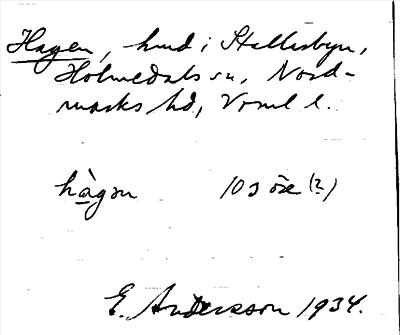 Hagen, hmd i Stallarbyn,
Holmedals sn, Nord-
marks hd, Vrml l.
hàgən 103 öre (?)
E. Andersson 1934.